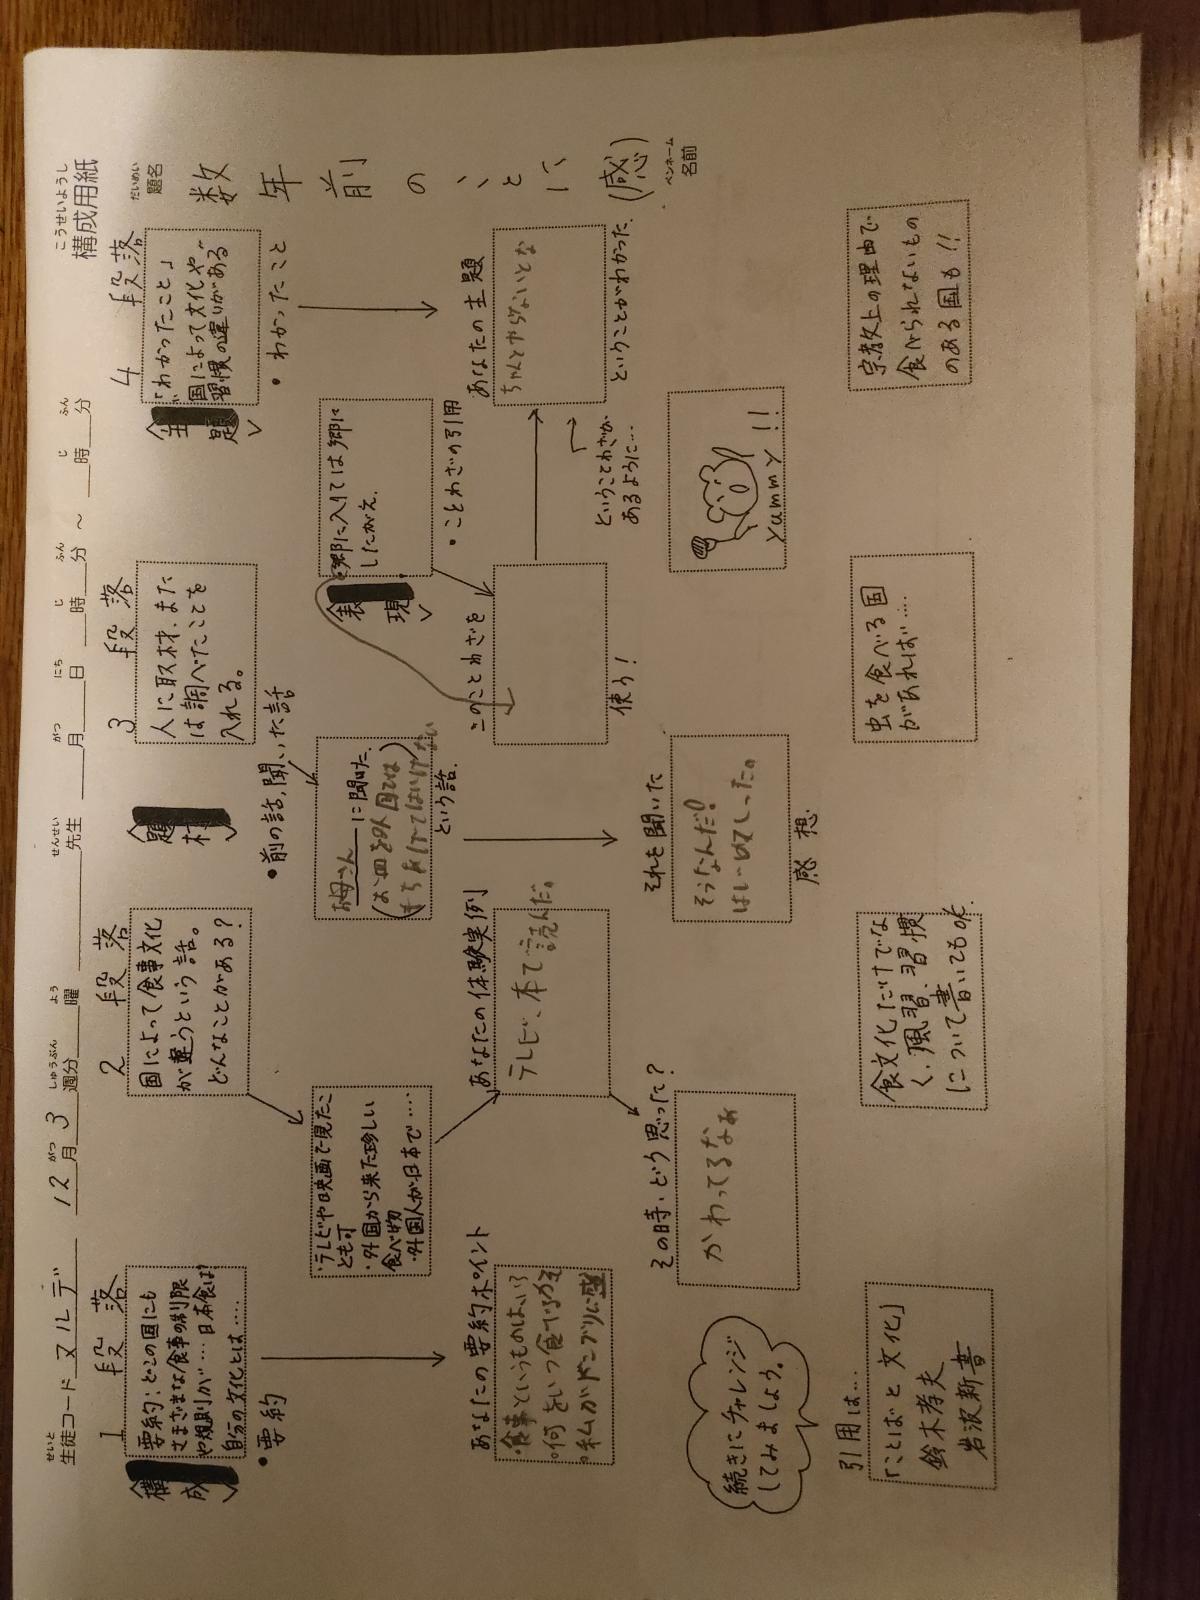 こうせいようし
構成用紙
せいと
生徒コード ヌルデ 12月3週分 曜 先生 月 日 時 分 ~ 時 分
がつ しゅうぶん よう せんせい がつ にち じ ふん じ ふん
だいめい
題名
数年前のことに(感)
ペンネーム
名前
1段落
構成
要約:どこの国にも
さまざまな食事の制限
や規則が…日本食は?
自分の文化とは……
・要約
あなたの要約ポイント
・食事というものはいろ
・何をいつ食べるか
・私がドンブリに
続きにチャレンジ
してみましょう。
引用は…
「ことばと文化」
鈴木孝夫
岩波新書
2段落
国によって食事文化
が違うという話。
どんなことがある?
・テレビや映画で見たこ
とも可
・外国から来た珍しい
食べ物
・外国人が日本で……
あなたの体験実例
テレビ、本で読んだ。
その時、どう思った?
かわってるなぁ
食文化だけでな
く、風習、習慣
について書いてもOK.
3段落
題材
人に取材、また
は調べたことを
入れる。
・前の話、聞いた話
お母さんに聞いた
(お皿を外国では
もちあげてはいけない)
という話.
それを聞いた
そうなんだ!
はじめてしった。
感想
虫を食べる国
があれば……
表現
郷に入りては郷に
したがえ.
・ことわざの引用
このことわざを
使う!
ということわざが
あるように…
Yammy!!
4段落
主題
「わかったこと」
国によって文化や
習慣の違いがある
・わかったこと
あなたの主題
ちゃんとやらないとな
ということがわかった.
宗教上の理由で
食べられないもの
のある国も!!